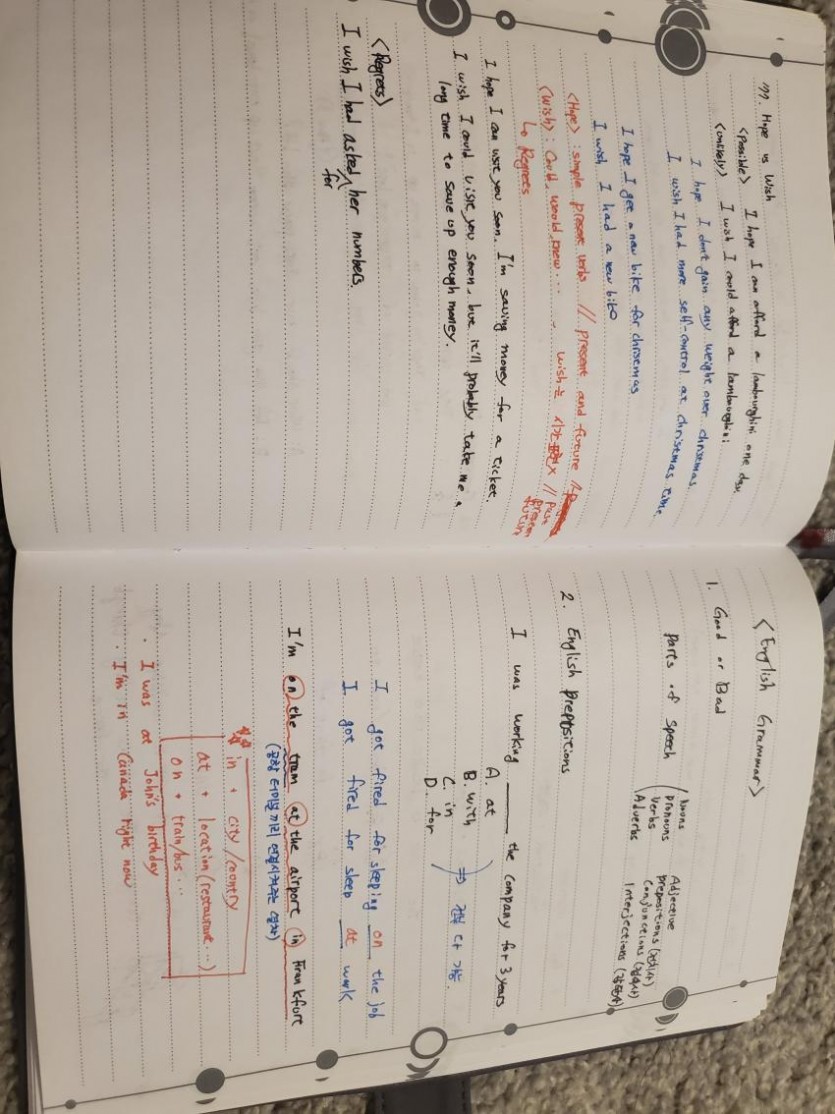 177. Hope vs Wish
<possible> I hope I can afford a lamborghini one day
<unlikely> I wish I could afford a lamborghini
I hope I don't gain any weight over christmas.
I wish I had more self-control at christmas time.
I hope I get a new bike for christmas
I wish I had a new bike
<Hope> : simple present verbs // present and future
<wish> : Could, would, knew ... , wish는 X // past present future
↳ Regrets
I hope I can visit you soon. I'm saving money for a ticket.
I wish I could visit you soon, but it'll probably take me a
long time to save up enough money.
<Regrets>
I wish I had asked for her numbers.
<English Grammar>
1. Good or Bad
Parts of Speech
Nouns
Pronouns
Verbs
Adverbs
Adjective
Prepositions (전치사)
Conjunctions (접속사)
Interjections (감탄사)
2. English Prepositions
I was working ____ the company for 3 years
A. at
B. with
C. in
D. for
⇒ 전부 다 가능.
I got fired for sleeping on the job
I got fired for sleep at work
I'm on the tram at the airport in Frankfurt
(공항 터미널끼리 연결시켜주는 열차)
in + city/country
at + location (restaurant ...)
on + train/bus ...
· I was at John's birthday
· I'm in Canada right now